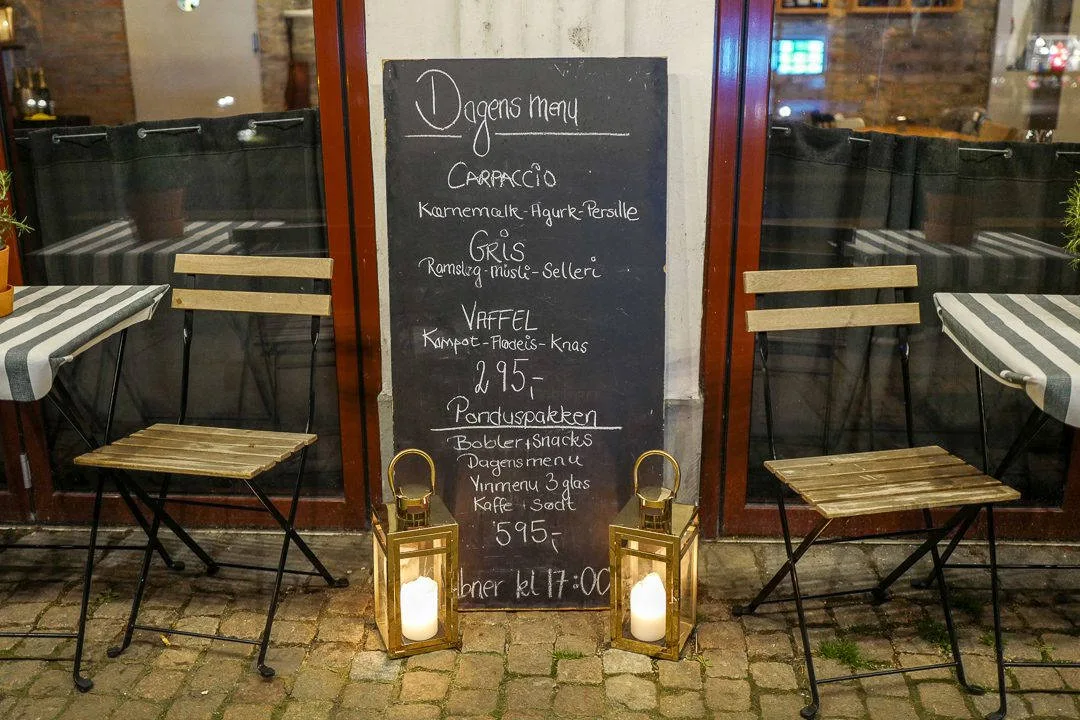 Dagens menu
CARPACCIO
Kærnemælk-Agurk-Persille
GRIS
Ramsløg-müsli-Selleri
VAFFEL
Kompot-Flødeis-Knas
295,-
Ponduspakken
Bobler+Snacks
Dagensmenu
Vinmenu 3 glas
Kaffe + Sødt
595,-
bner kl 17:00